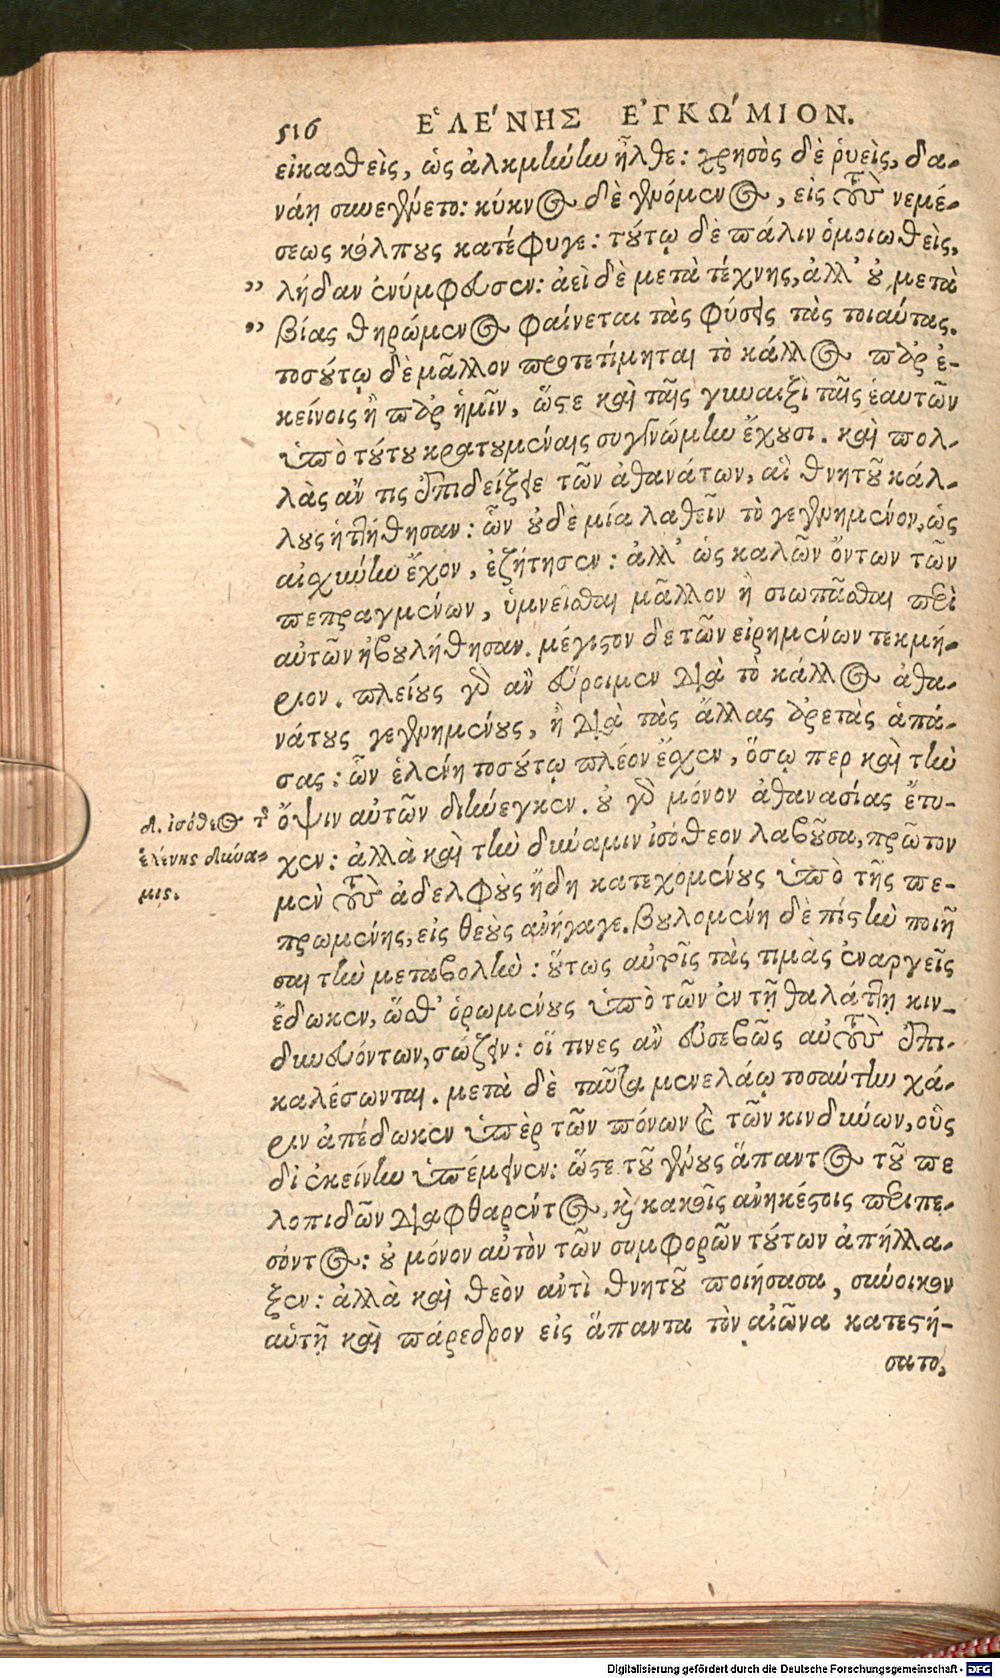 516 ἙΛΈΝΗΣ ἘΓΚΏΜΙΟΝ.
εἰκασθεὶς, ὡς ἀλκμήνην ἦλθε: χρυσὸς δὲ ῥυεὶς, δα-
νάῃ συνεγένετο: κύκνος δὲ γενόμενος, εἰς τοὺς νεμέ-
σεως κόλπους κατέφυγε: τούτῳ δὲ πάλιν ὁμοιωθεὶς,
„ λήδαν ἐνύμφευσεν: ἀεὶ δὲ μετὰ τέχνης, ἀλλ' οὐ μετὰ
„ βίας θηρώμενος φαίνεται τὰς φύσεις τὰς τοιαύτας.
τοσούτῳ δὲ μᾶλλον προτετίμηται τὸ κάλλος παρ' ἐ-
κείνοις ἢ παρ' ἡμῖν, ὥστε καὶ ταῖς γυναιξὶ ταῖς ἑαυτῶν
ὑπὸ τούτου κρατουμέναις συγγνώμην ἔχουσι. καὶ πολ-
λὰς ἄν τις ἐπιδείξειε τῶν ἀθανάτων, αἳ θνητοῦ κάλ-
λους ἡττήθησαν: ὧν οὐδεμία λαθεῖν τὸ γεγενημένον, ὡς
αἰσχύνην ἔχον, ἐζήτησεν: ἀλλ' ὡς καλῶν ὄντων τῶν
πεπραγμένων, ὑμνεῖσθαι μᾶλλον ἢ σιωπᾶσθαι περὶ
αὐτῶν ἠβουλήθησαν. μέγιστον δὲ τῶν εἰρημένων τεκμή-
ριον. πλείους γὰρ ἂν εὕροιμεν διὰ τὸ κάλλος ἀθα-
νάτους γεγενημένους, ἢ διὰ τὰς ἄλλας ἀρετὰς ἁπά-
σας: ὧν ἑλένη τοσούτῳ πλέον ἔσχεν, ὅσῳ περ καὶ τὴν
ὄψιν αὐτῶν διήνεγκεν. οὐ γὰρ μόνον ἀθανασίας ἔτυ-
χεν: ἀλλὰ καὶ τὴν δύναμιν ἰσόθεον λαβοῦσα, πρῶτον
μὲν τοὺς ἀδελφοὺς ἤδη κατεχομένους ὑπὸ τῆς πε-
πρωμένης, εἰς θεοὺς ἀνήγαγε. βουλομένη δὲ πίστιν ποιῆ
σαι τὴν μεταβολὴν: οὕτως αὐτοῖς τὰς τιμὰς ἐναργεῖς
ἔδωκεν, ὥσθ' ὁρωμένους ὑπὸ τῶν ἐν τῇ θαλάττῃ κιν-
δυνευόντων, σώζειν: οἵ τινες ἂν εὐσεβῶς αὐτοὺς ἐπι-
καλέσωνται. μετὰ δὲ ταῦτα μενελάῳ τοσαύτην χά-
ριν ἀπέδωκεν ὑπὲρ τῶν πόνων καὶ τῶν κινδύνων, οὓς
δι' ἐκείνην ὑπέμεινεν: ὥστε τοῦ γένους ἅπαντος τοῦ πε
λοπιδῶν διαφθαρέντος, καὶ κακοῖς ἀνηκέστοις περιπε-
σόντος: οὐ μόνον αὐτὸν τῶν συμφορῶν τούτων ἀπήλλα-
ξεν: ἀλλὰ καὶ θεὸν ἀντὶ θνητοῦ ποιήσασα, σύνοικον
αὑτῇ καὶ πάρεδρον εἰς ἅπαντα τὸν αἰῶνα κατεστή-
σατο,
ἰσόθεος τῆς
ἑλένης δύνα-
μις.
Digitalisierung gefördert durch die Deutsche Forschungsgemeinschaft - DFG